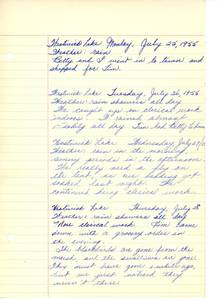 Westwind Lake Monday, July 25, 1955
Weather: rain
Betty and I went in to town and
shopped for Tim.
Westwind Lake Tuesday, July 26, 1955
Weather: rain showers all day
We caught up on clerical work
indoors. It rained almost
steadily all day. Tim and Betty
Westwind Lake Wednesday, July 27
Weather: rain in the morning
sunny periods in the afternoon.
the tent, as our
soaked last night. We
continued doing clerical work.
Westwind Lake Thursday, July 28
Weather: rain showers all day
More clerical work. Tim came
down with a grocery order in
the evening.
The blackbirds are gone from the
marsh, and the swallows are gone.
They must have gone a while ago,
but we just noticed they
weren't there.